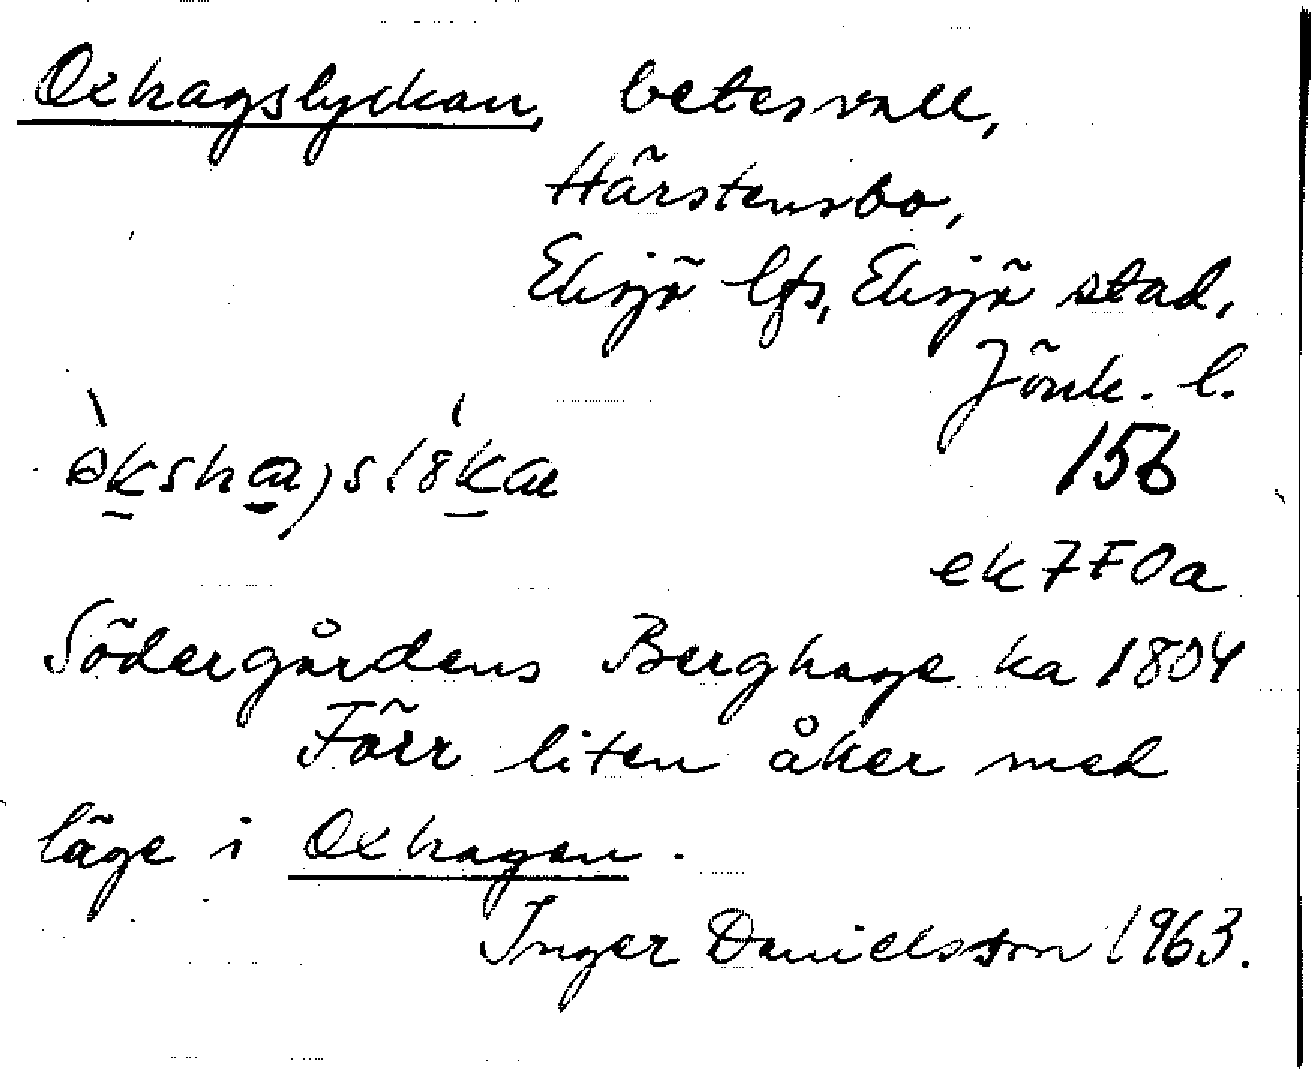 Oxhagslyckan, betesvall,
Härstensbo,
Eksjö lfs, Eksjö stad,
Jönk. l.
156
ek 7F0a
Södergårdens Berghage ka 1804
Förr liten åker med
läge i Oxhagen.
Inger Danielsson 1963.